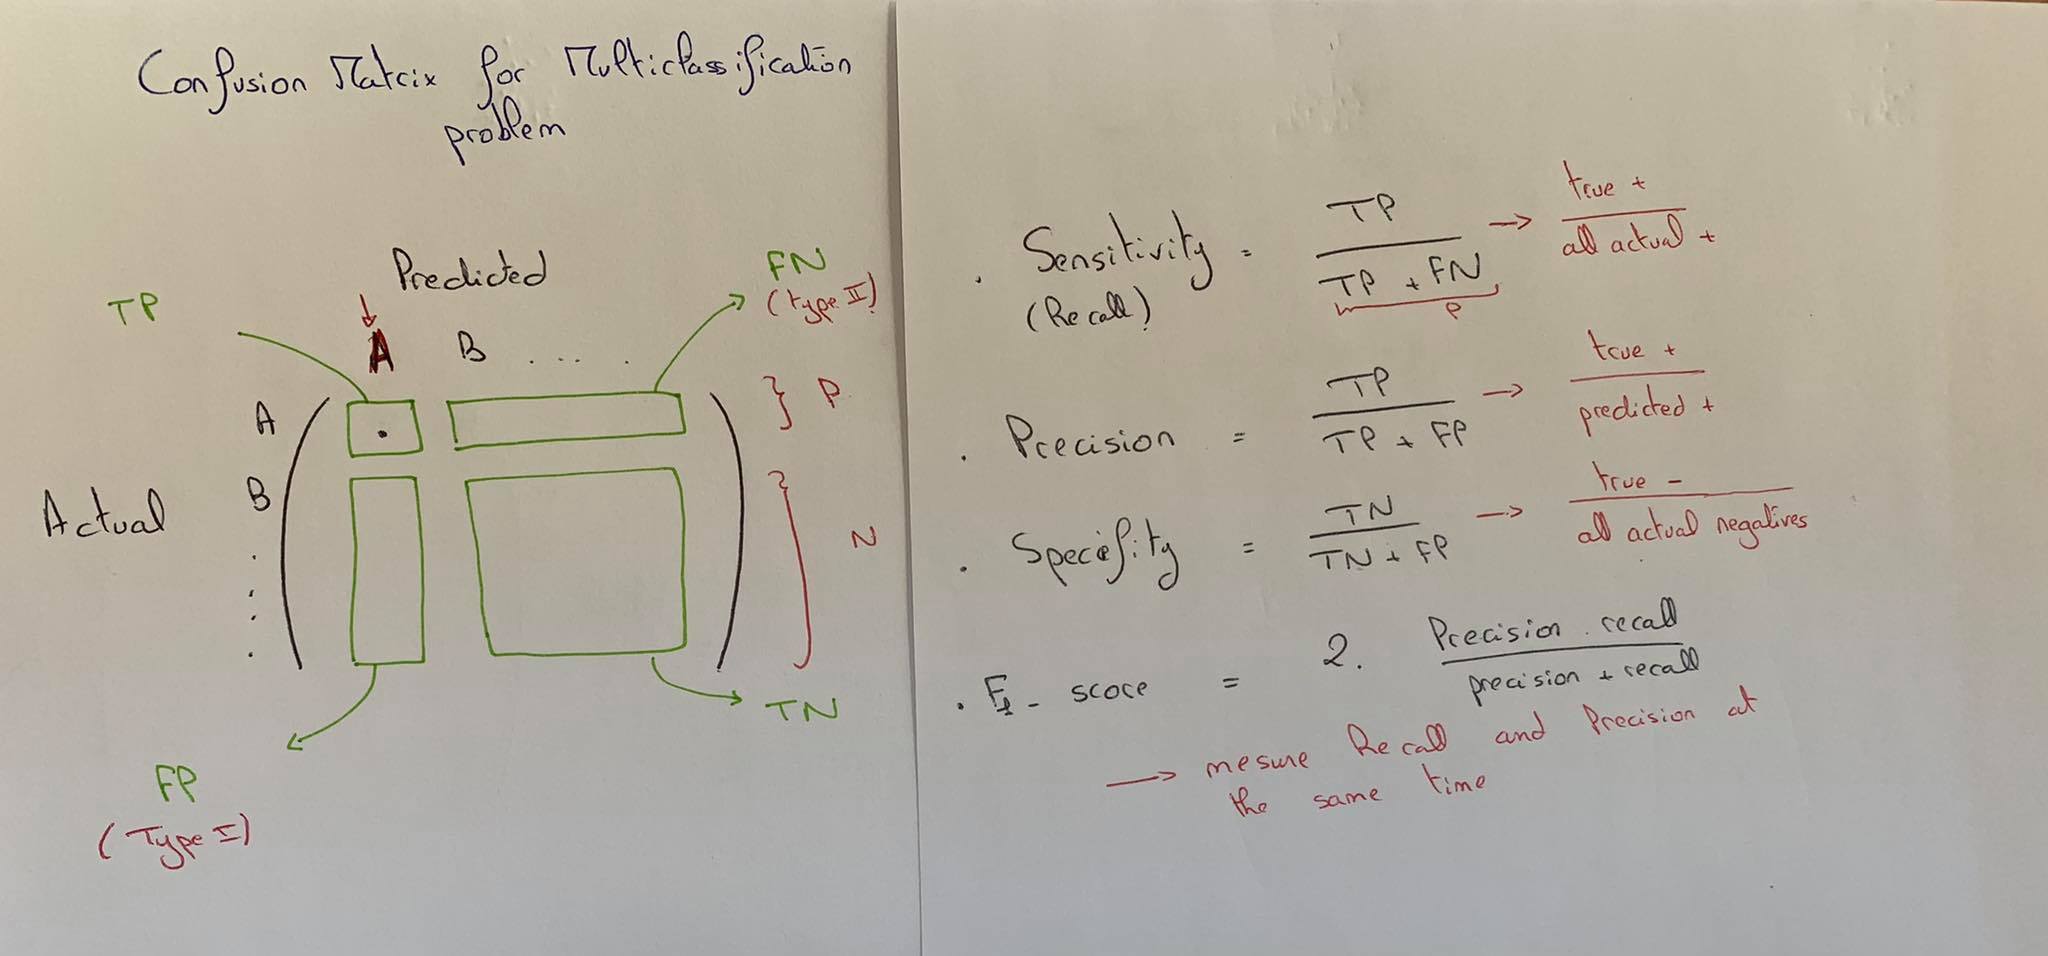 Confusion Matrix for Multiclassification
problem
Predicted
TP
FN
(type II)
A B . . . .
A
P
B
Actual
N
.
.
.
.
TN
FP
(Type I)
. Sensitivity = TP / TP + FN → true + / all actual +
(Recall)
P
. Precision = TP / TP + FP → true + / predicted +
. Specifity = TN / TN + FP → true - / all actual negatives
. F1 - score = 2. Precision . recall / precision + recall
→ mesure Recall and Precision at
the same time